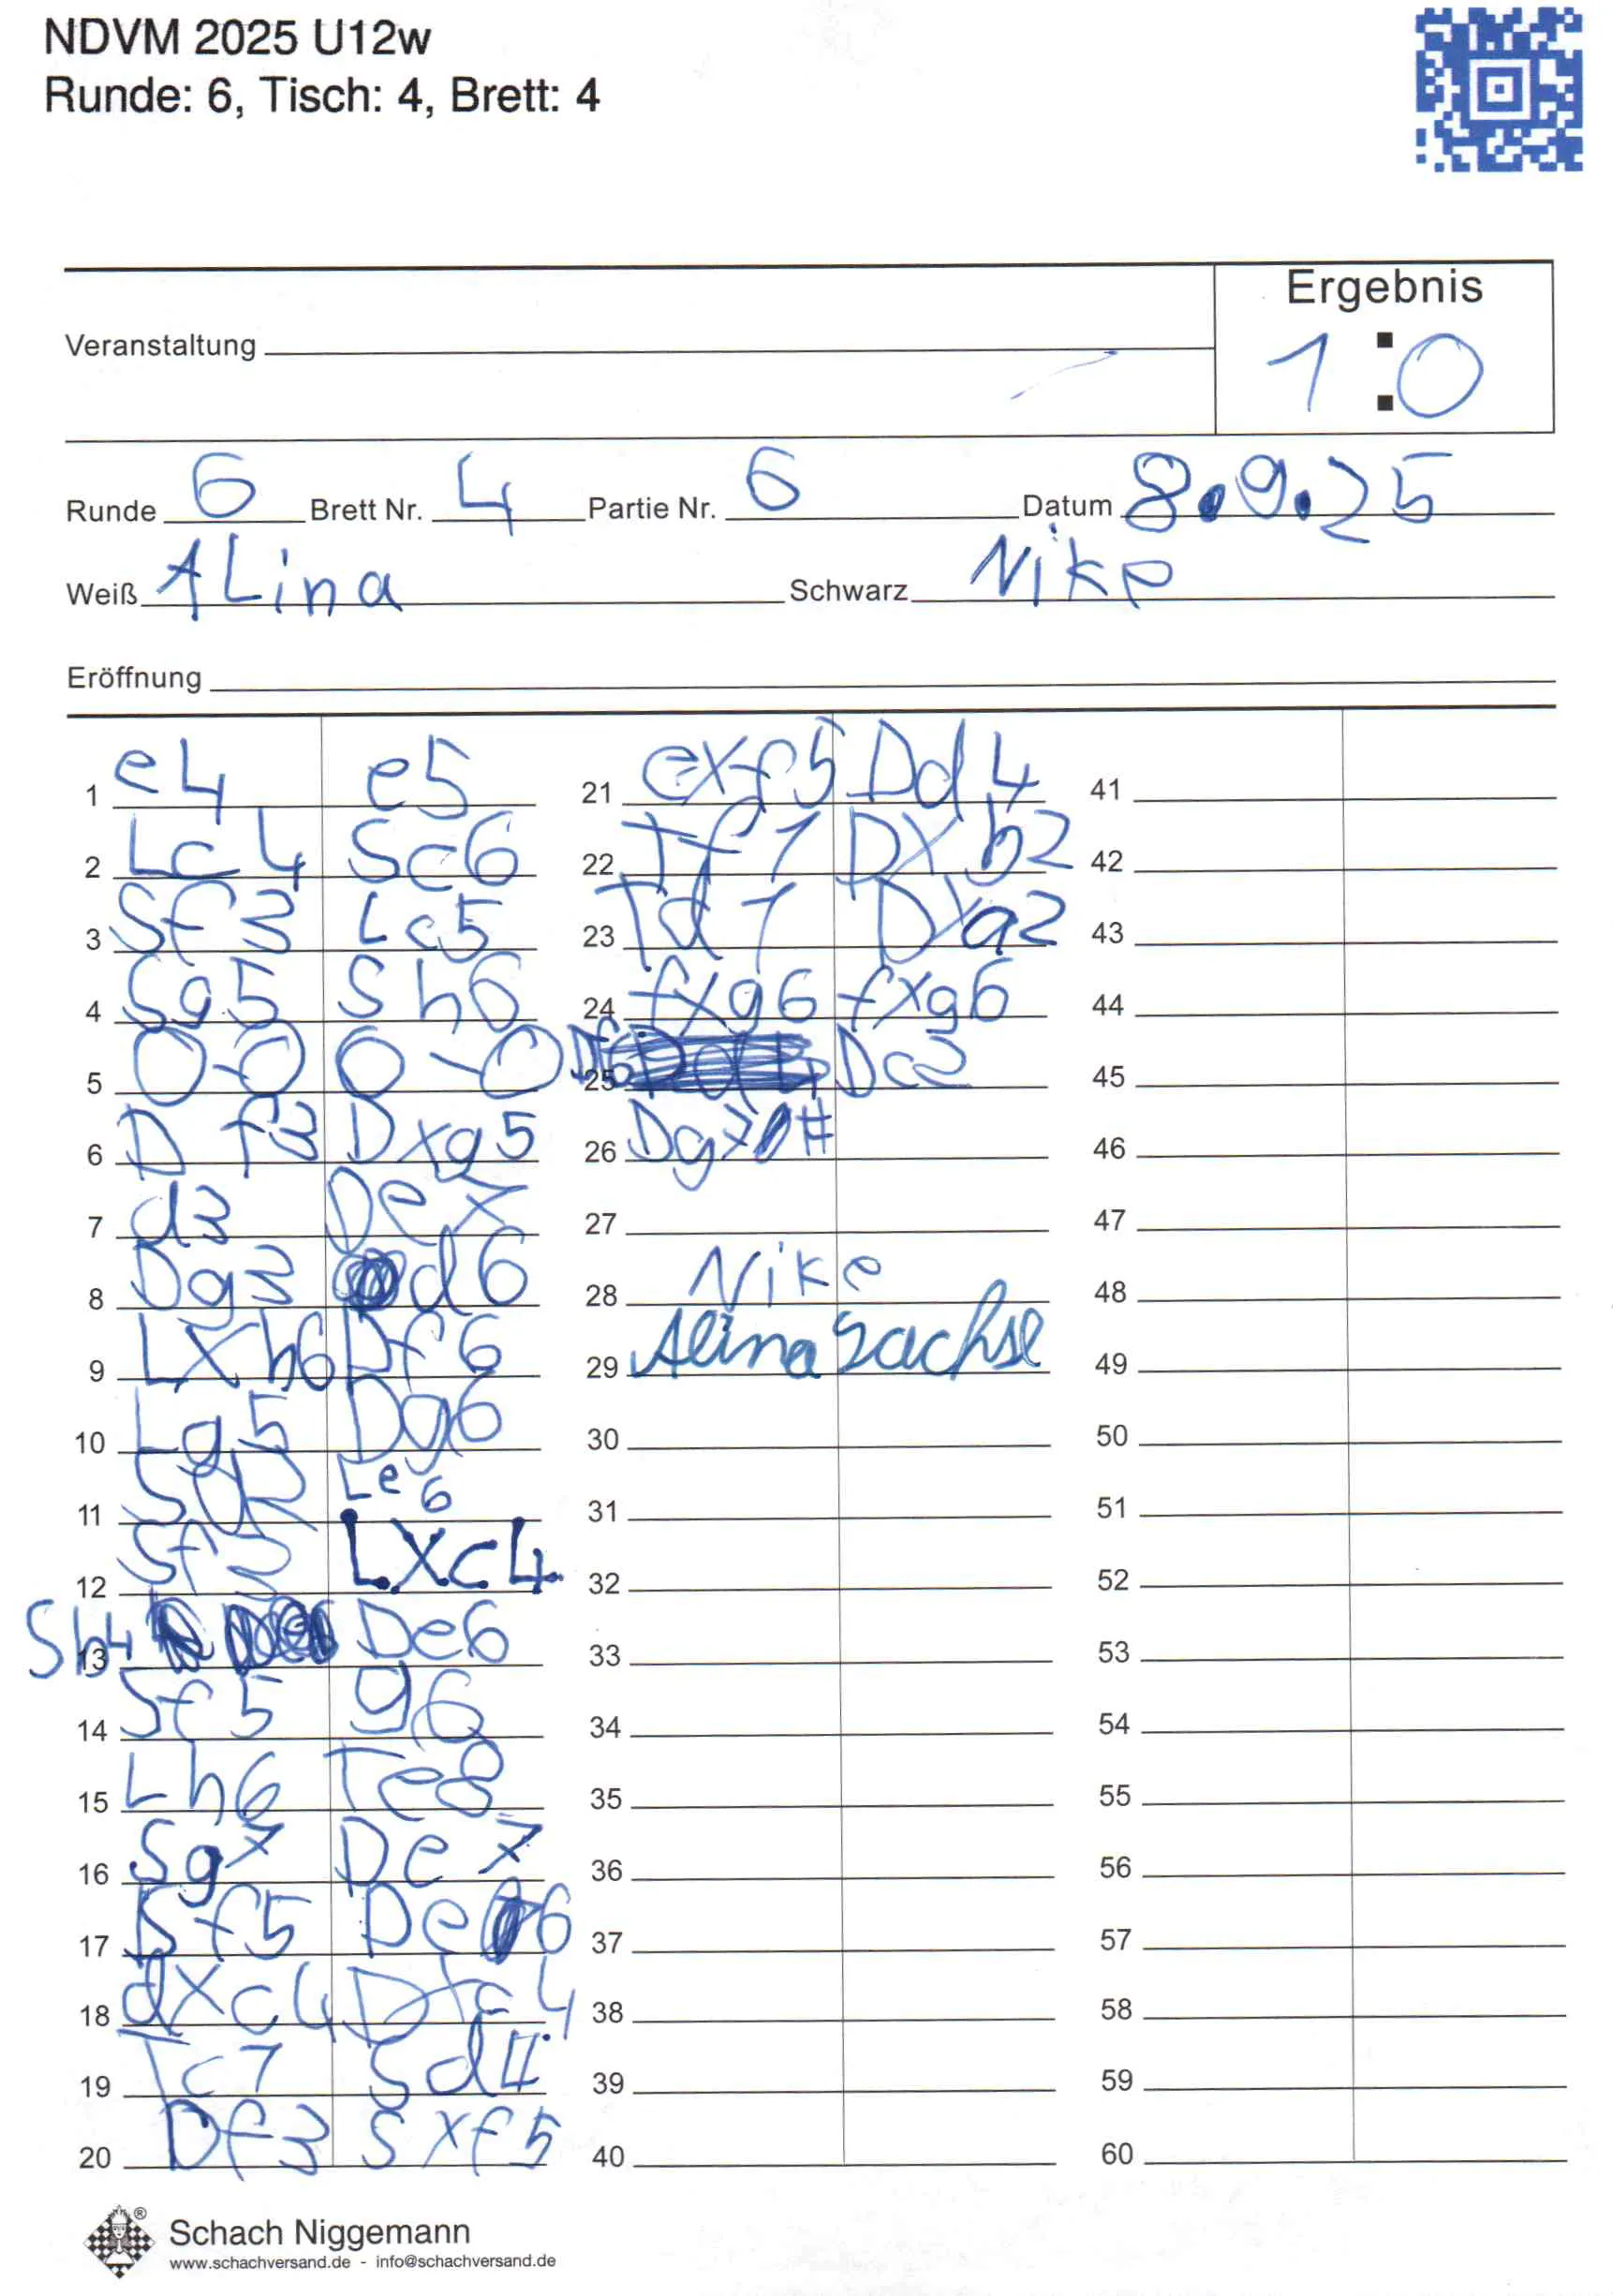 NDVM 2025 U12w
Runde: 6, Tisch: 4, Brett: 4
Ergebnis
1:0
Veranstaltung
Runde 6 Brett Nr. 4 Partie Nr. 6 Datum 8.9.25
Weiß ALina Schwarz Nike
Eröffnung
1 e4 e5
2 Lc4 Sc6
3 Sf3 Lc5
4 Sg5 Sh6
5 0-0 0-0
6 Df3 Dxg5
7 d3 De7
8 Dg3 d6
9 LXh6 Df6
10 Lg5 Dg6
11 Sd2 Le6
12 Sf3 LXc4
13 Sh4 De6
14 Sf5 g6
15 Lh6 Te8
16 Sg7 De7
17 Sf5 De6
18 dXc4 Df4
19 Tc7 Sd4
20 Df3 Sxf5
21 exf5 Dd4
22 Tf1 DXb2
23 Td1 DXa2
24 fXg6 fXg6
25 Df6 Dc2
26 Dg7#
27
28 Nike
29 Alina Sachse
30
31
32
33
34
35
36
37
38
39
40
41
42
43
44
45
46
47
48
49
50
51
52
53
54
55
56
57
58
59
60
Schach Niggemann
www.schachversand.de - info@schachversand.de